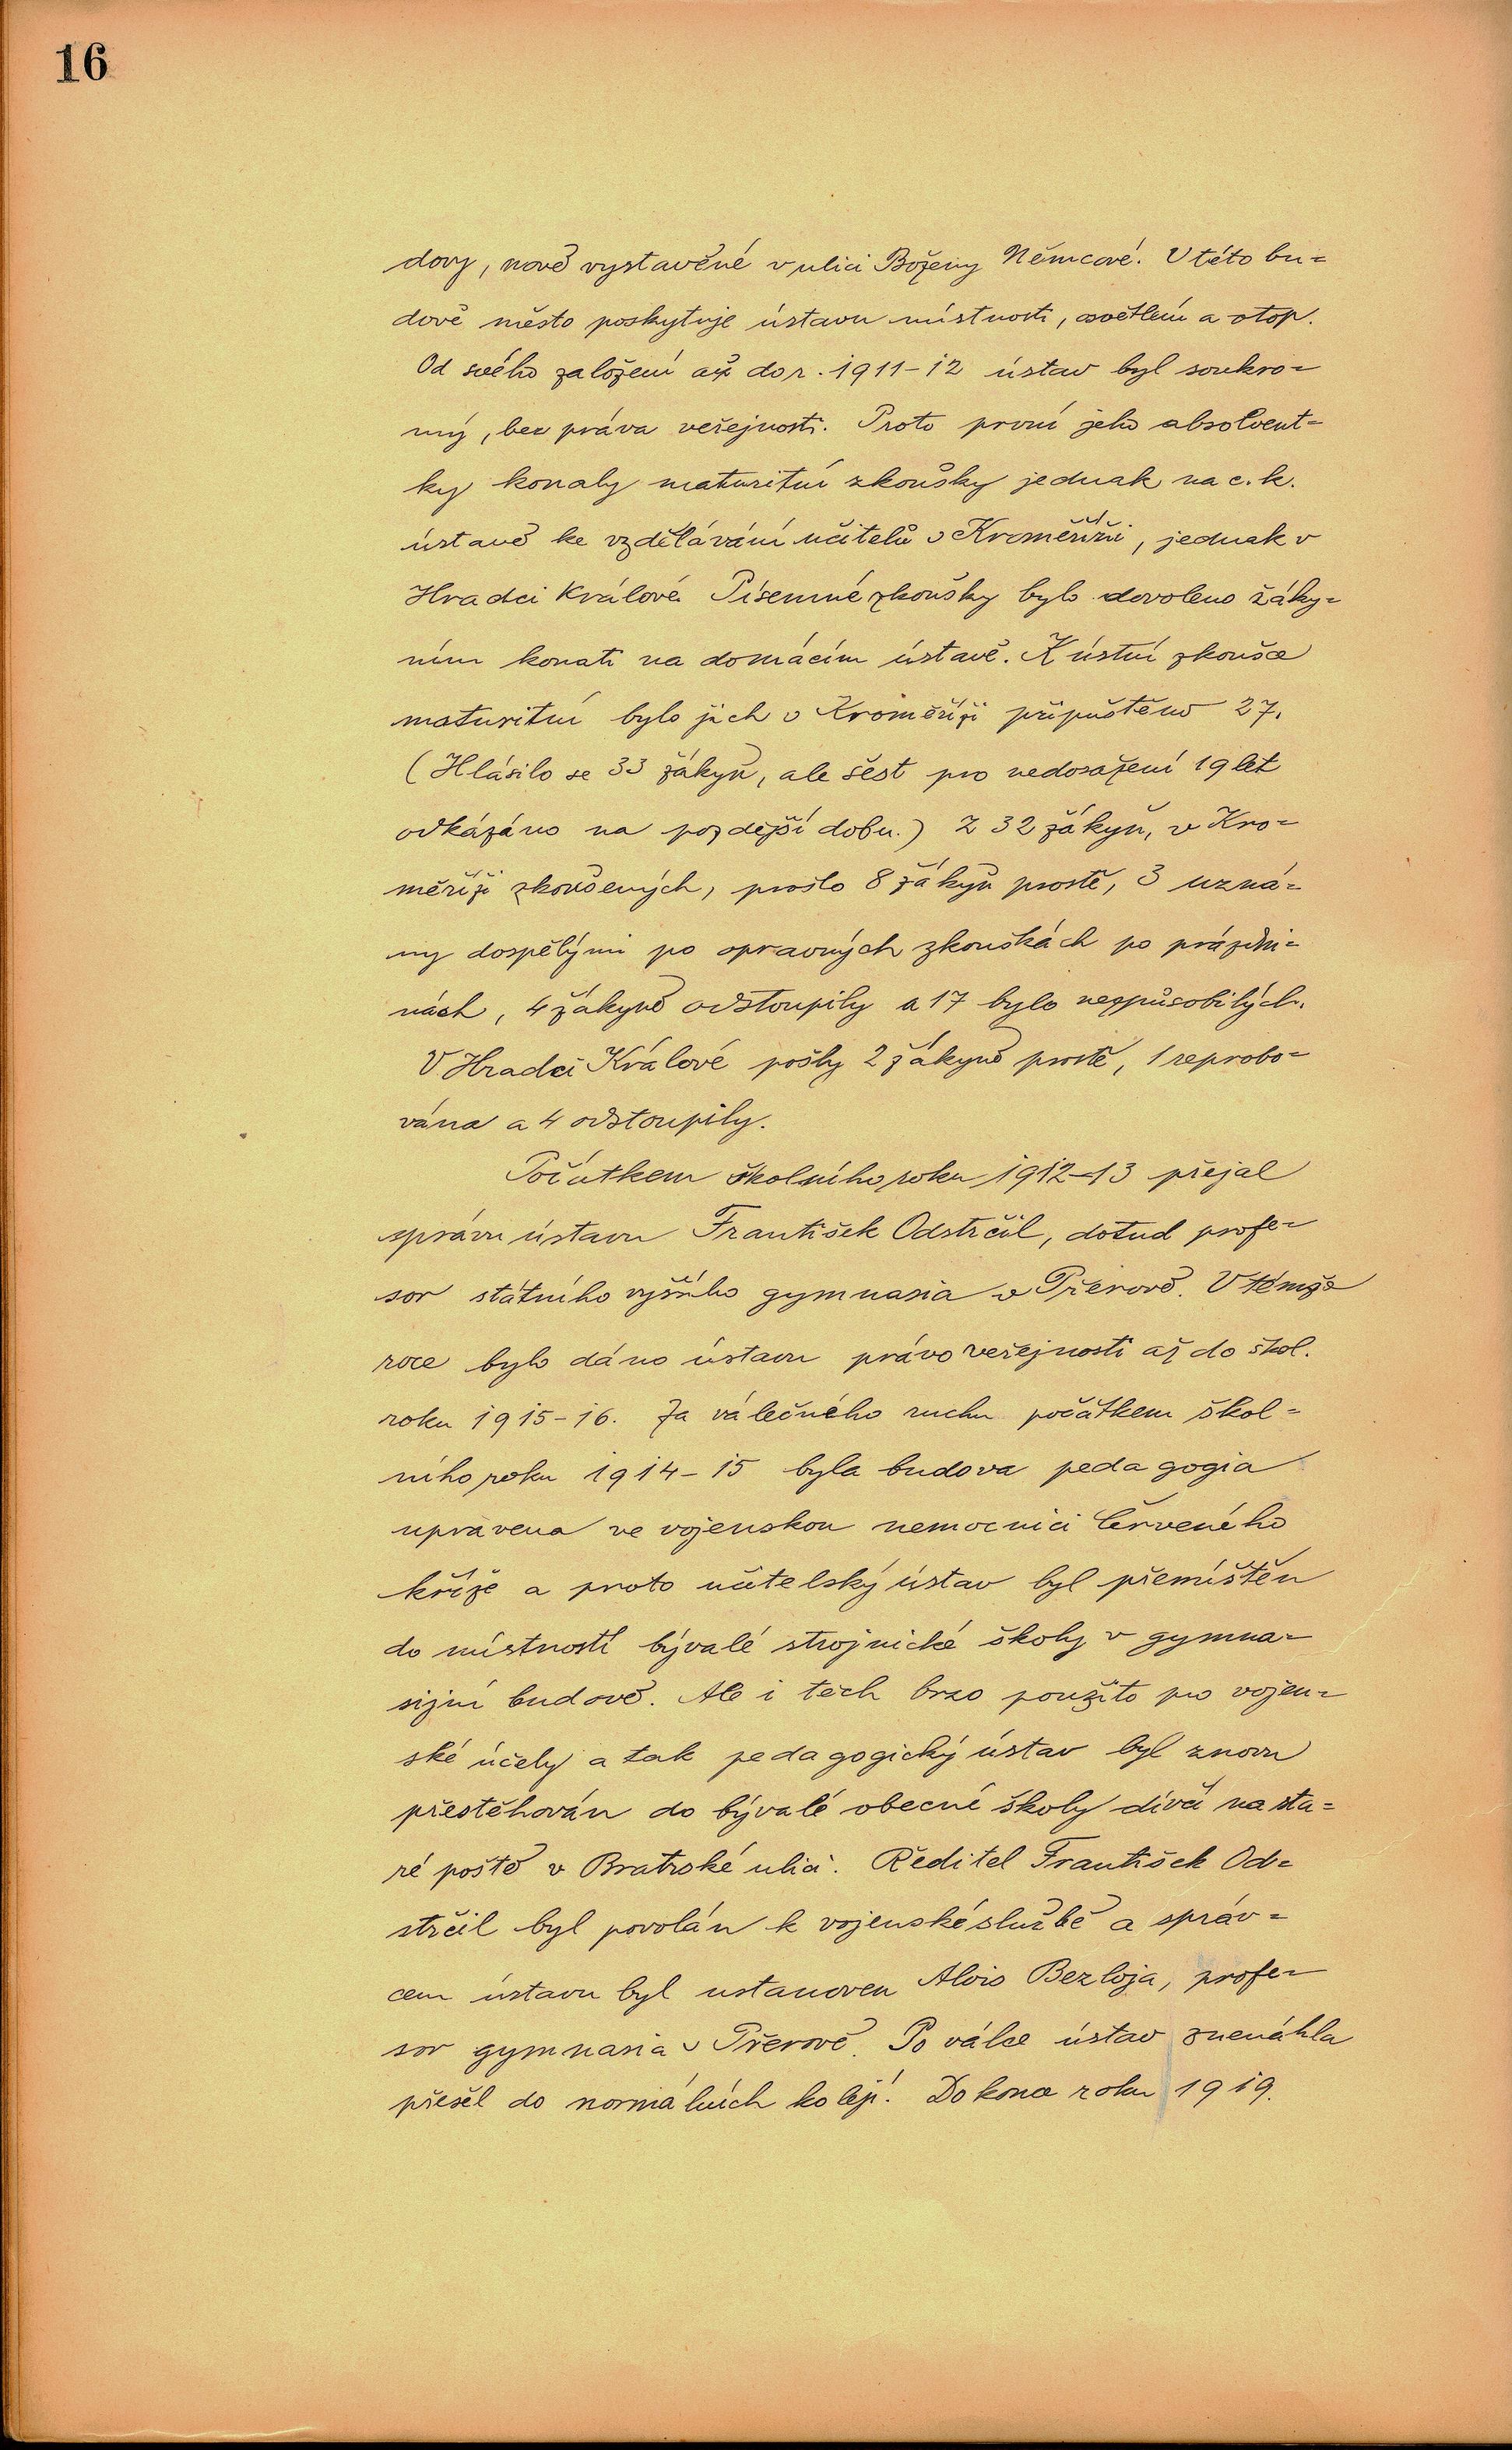 16
dovy, nově vystavěné v ulici Boženy Němcové. V této bu=
dově město poskytuje ústavu místnosti, osvětlení a otop.
Od svého založení až do r. 1911-12 ústav byl soukro=
mý, bez práva veřejnosti. Proto první jeho absolvent=
ky konaly maturitní zkoušky jednak na c. k.
ústavě ke vzdělávání učitelů v Kroměříži, jednak v
Hradci Králové. Písemné zkoušky bylo dovoleno žáky=
ním konati na domácím ústavě. K ústní zkoušce
maturitní bylo jich v Kroměříži připuštěno 27.
(Hlásilo se 33 žákyň, ale šest pro nedosažení 19 let
odkázáno na pozdější dobu.) Z 32 žákyň, v Kro=
měříži zkoušených, prošlo 8 žákyň prostě, 3 uzná=
ny dospělými po opravných zkouškách po prázdni=
nách, 4 žákyně odstoupily a 17 bylo nezpůsobilých.
V Hradci Králové pošly 2 žákyně prostě, 1 reprobo=
vána a 4 odstoupily.
Počátkem školního roku 1912-13 přejal
správu ústavu František Odstrčil, dotud profe=
sor státního vyššího gymnasia v Přerově. V témže
roce bylo dáno ústavu právo veřejnosti až do škol.
roku 1915-16. Za válečného ruchu počátkem škol=
ního roku 1914-15 byla budova pedagogia
upravena ve vojenskou nemocnici Červeného
kříže a proto učitelský ústav byl přemístěn
do místností bývalé strojnické školy v gymna=
sijní budově. Ale i těch brzo použito pro vojen=
ské účely a tak pedagogický ústav byl znovu
přestěhován do bývalé obecné školy dívčí na sta=
ré poště v Bratrské ulici. Ředitel František Od=
strčil byl povolán k vojenské službě a správ=
cem ústavu byl ustanoven Alois Bezloja, profe=
sor gymnasia v Přerově. Po válce ústav znenáhla
přešel do normálních kolejí. Do konce roku 1919.